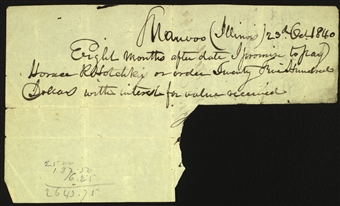 Nauvoo (Illinois) 23rd Oct. 1840
Eight Months after date I promise to pay
Horace R Hotchkiss or order Twenty Five Hundred
Dollars with interest for value received
2500
137.50
6.25
2643.75